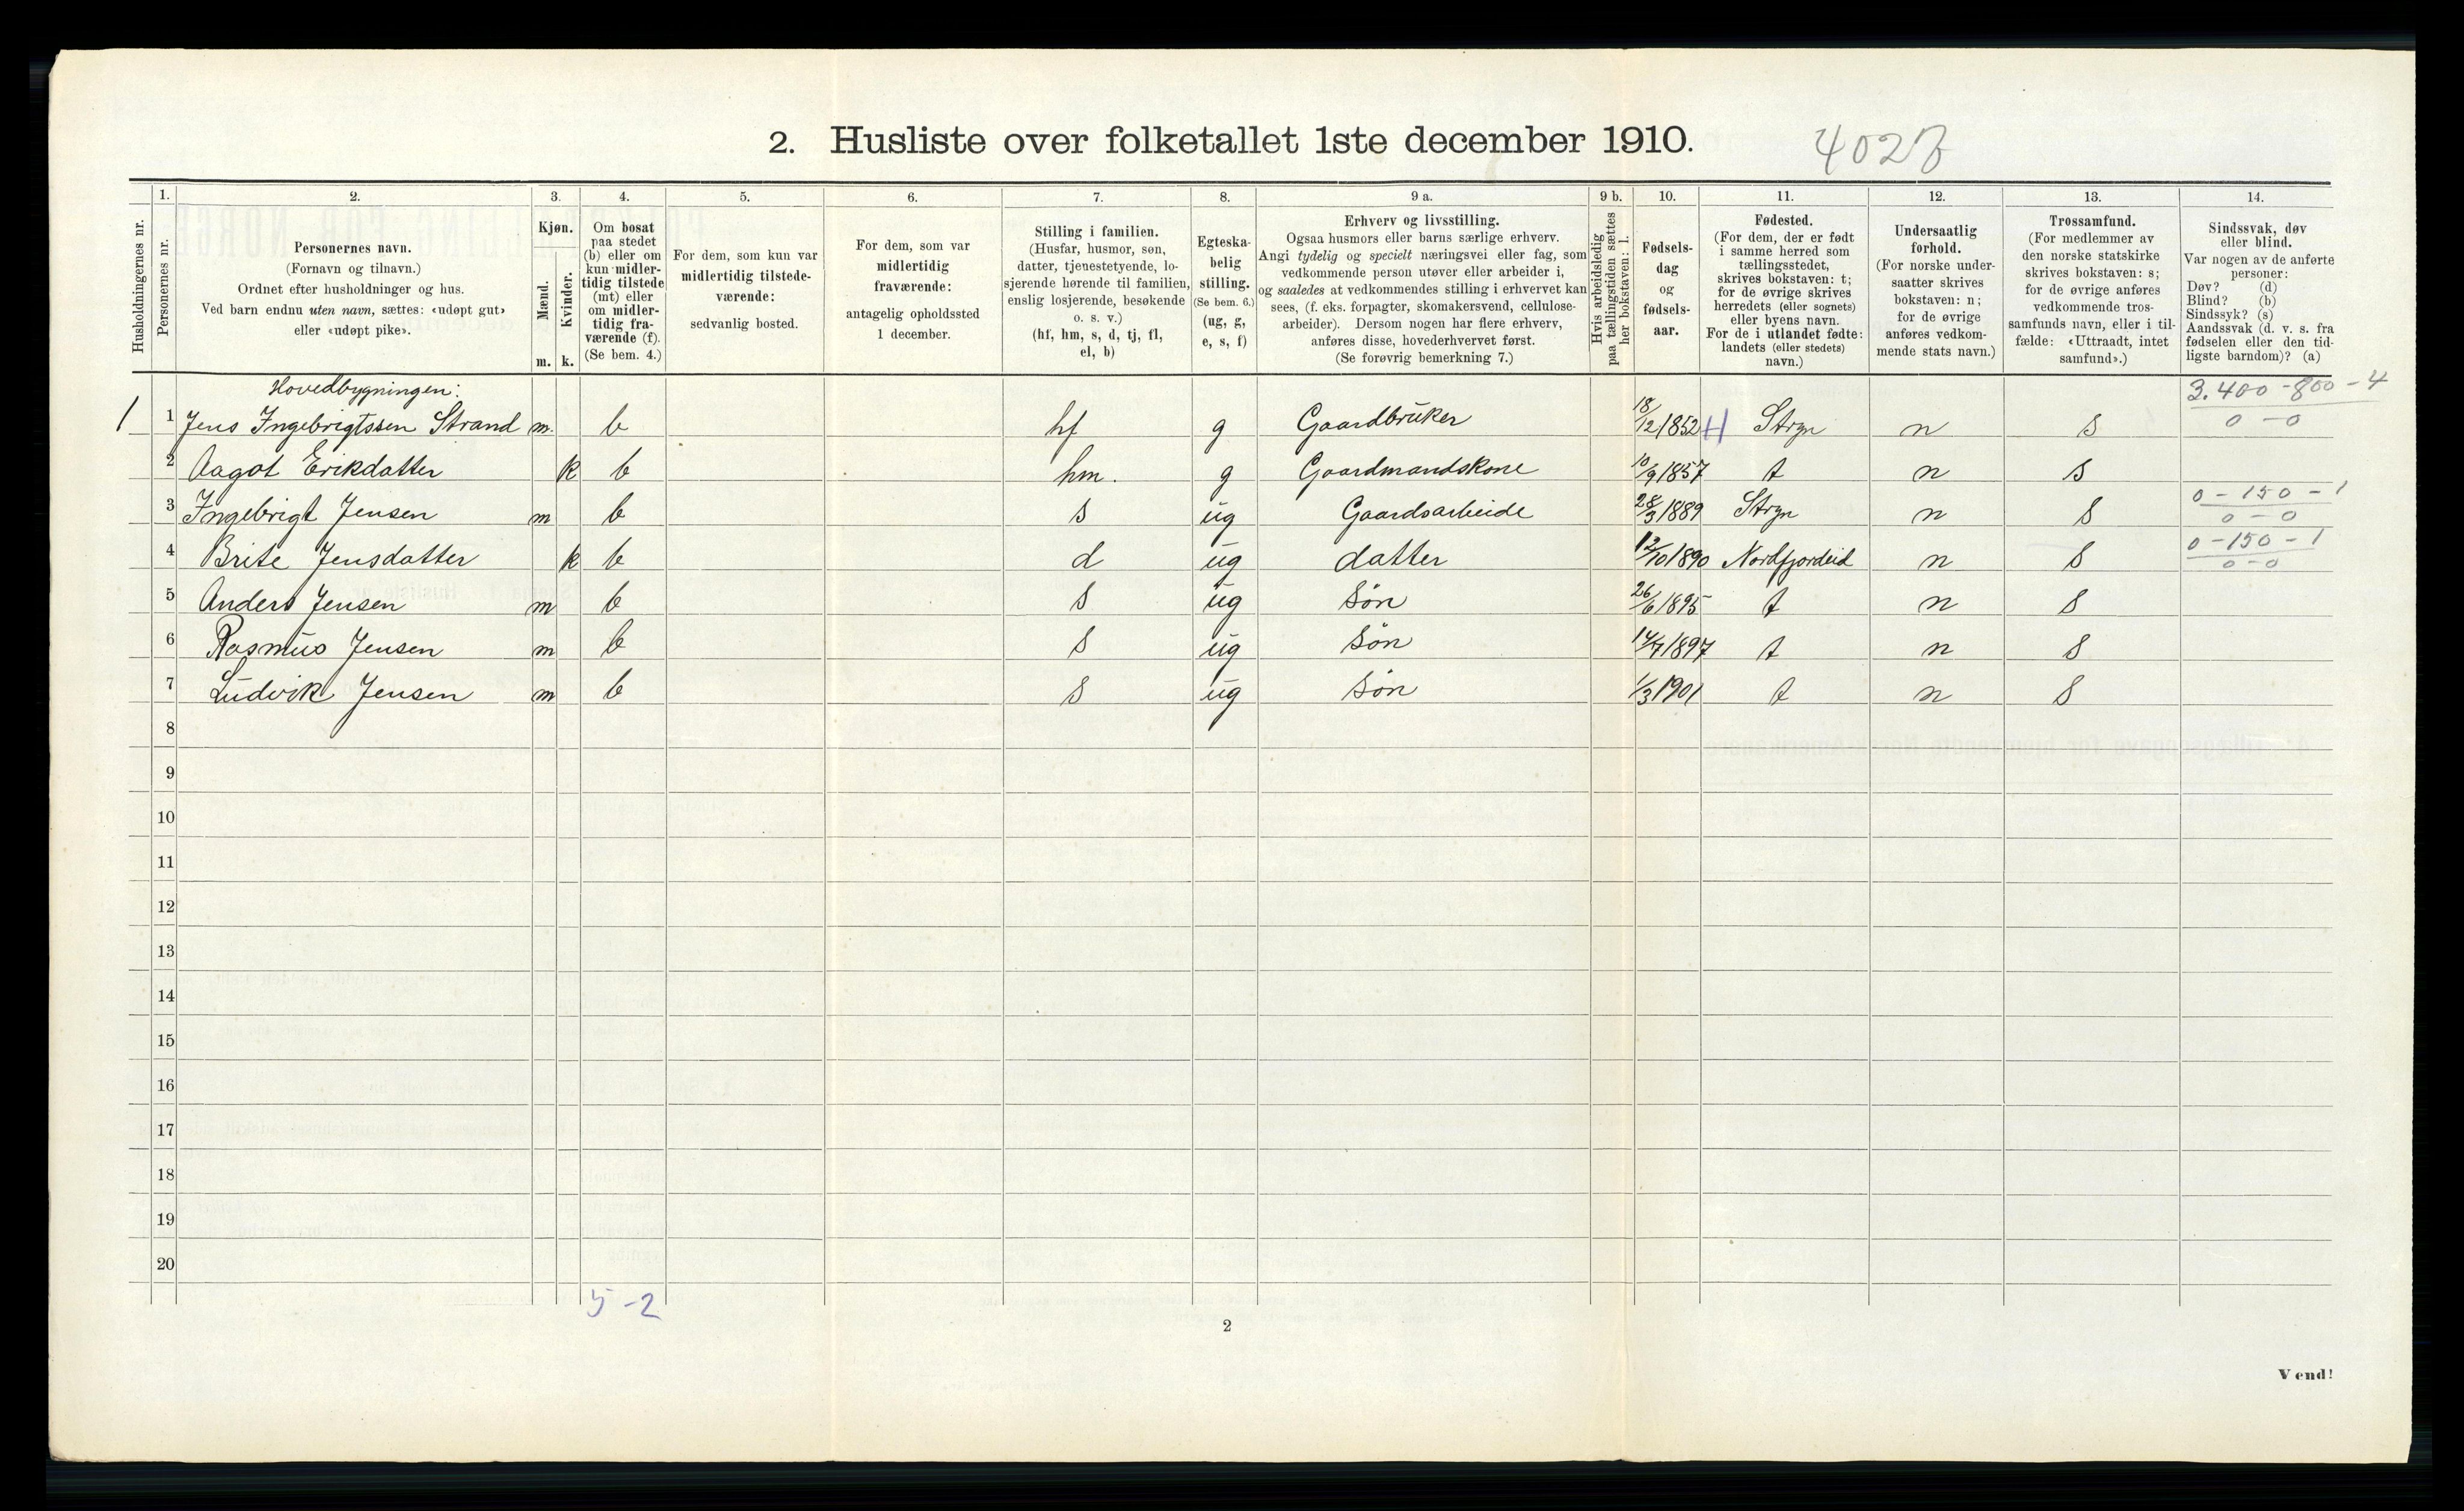 2. Husliste over folketallet 1ste december 1910.
1. 2. 3. 4. 5. 6. 7. 8. 9 a. 9 b. 10. 11. 12. 13. 14.
Husholdningernes nr.
Personernes nr.
Personernes navn.
(Fornavn og tilnavn.)
Ordnet efter husholdninger og hus.
Ved barn endnu uten navn, sættes: «udøpt gut»
eller «udøpt pike».
Kjøn.
Mænd.
m.
Kvinder.
k.
Om bosat
paa stedet
(b) eller om
kun midler-
tidig tilstede
(mt) eller
om midler-
tidig fra-
værende (f).
(Se bem. 4.)
For dem, som kun var
midlertidig tilstede-
værende:
sedvanlig bosted.
For dem, som var
midlertidig
fraværende:
antagelig opholdssted
1 december.
Stilling i familien.
(Husfar, husmor, søn,
datter, tjenestetyende, lo-
sjerende hørende til familien,
enslig losjerende, besøkende
o. s. v.)
(hf, hm, s, d, tj, fl,
el, b)
Egteska-
belig
stilling.
(Se bem. 6.)
(ug, g,
e, s, f)
Erhverv og livsstilling.
Ogsaa husmors eller barns særlige erhverv.
Angi tydelig og specielt næringsvei eller fag, som
vedkommende person utøver eller arbeider i,
og saaledes at vedkommendes stilling i erhvervet kan
sees, (f. eks. forpagter, skomakersvend, cellulose-
arbeider). Dersom nogen har flere erhverv,
anføres disse, hovederhvervet først.
(Se forøvrig bemerkning 7.)
Hvis arbeidsledig
paa tællingstiden sættes
her bokstaven: l.
Fødsels-
dag
og
fødsels-
aar.
Fødested.
(For dem, der er født
i samme herred som
tællingsstedet,
skrives bokstaven: t;
for de øvrige skrives
herredets (eller sognets)
eller byens navn.
For de i utlandet fødte:
landets (eller stedets)
navn.)
Undersaatlig
forhold.
(For norske under-
saatter skrives
bokstaven: n;
for de øvrige
anføres vedkom-
mende stats navn.)
Trossamfund.
(For medlemmer av
den norske statskirke
skrives bokstaven: s;
for de øvrige anføres
vedkommende tros-
samfunds navn, eller i til-
fælde: «Uttraadt, intet
samfund».)
Sindssvak, døv
eller blind.
Var nogen av de anførte
personer:
Døv? (d)
Blind? (b)
Sindssyk? (s)
Aandssvak (d. v. s. fra
fødselen eller den tid-
ligste barndom)? (a)
Hovedbygningen: 3.400 - 800 - 4
1 1 Jens Ingebrigtssen Strand m. b hf g Gaardbruker 18/12 1852 H Stryn n s 0 - 0
2 Aagot Erikdatter k b hm. g Gaardmandskone 10/9 1857 t n s
0 - 150 - 1
3 Ingebrigt Jensen m b s ug Gaardsarbeide 28/3 1889 Stryn n s 0 - 0
0 - 150 - 1
4 Brite Jensdatter k b d ug datter 12/10 1890 Nordfjordeid n s 0 - 0
5 Anders Jensen m b s ug søn 26/6 1895 t n s
6 Rasmus Jensen m b s ug søn 14/7 1897 t n s
7 Ludvik Jensen m b s ug søn 1/3 1901 t n s
8
9
10
11
12
13
14
15
16
17
18
19
20
5 - 2
2
Vend!